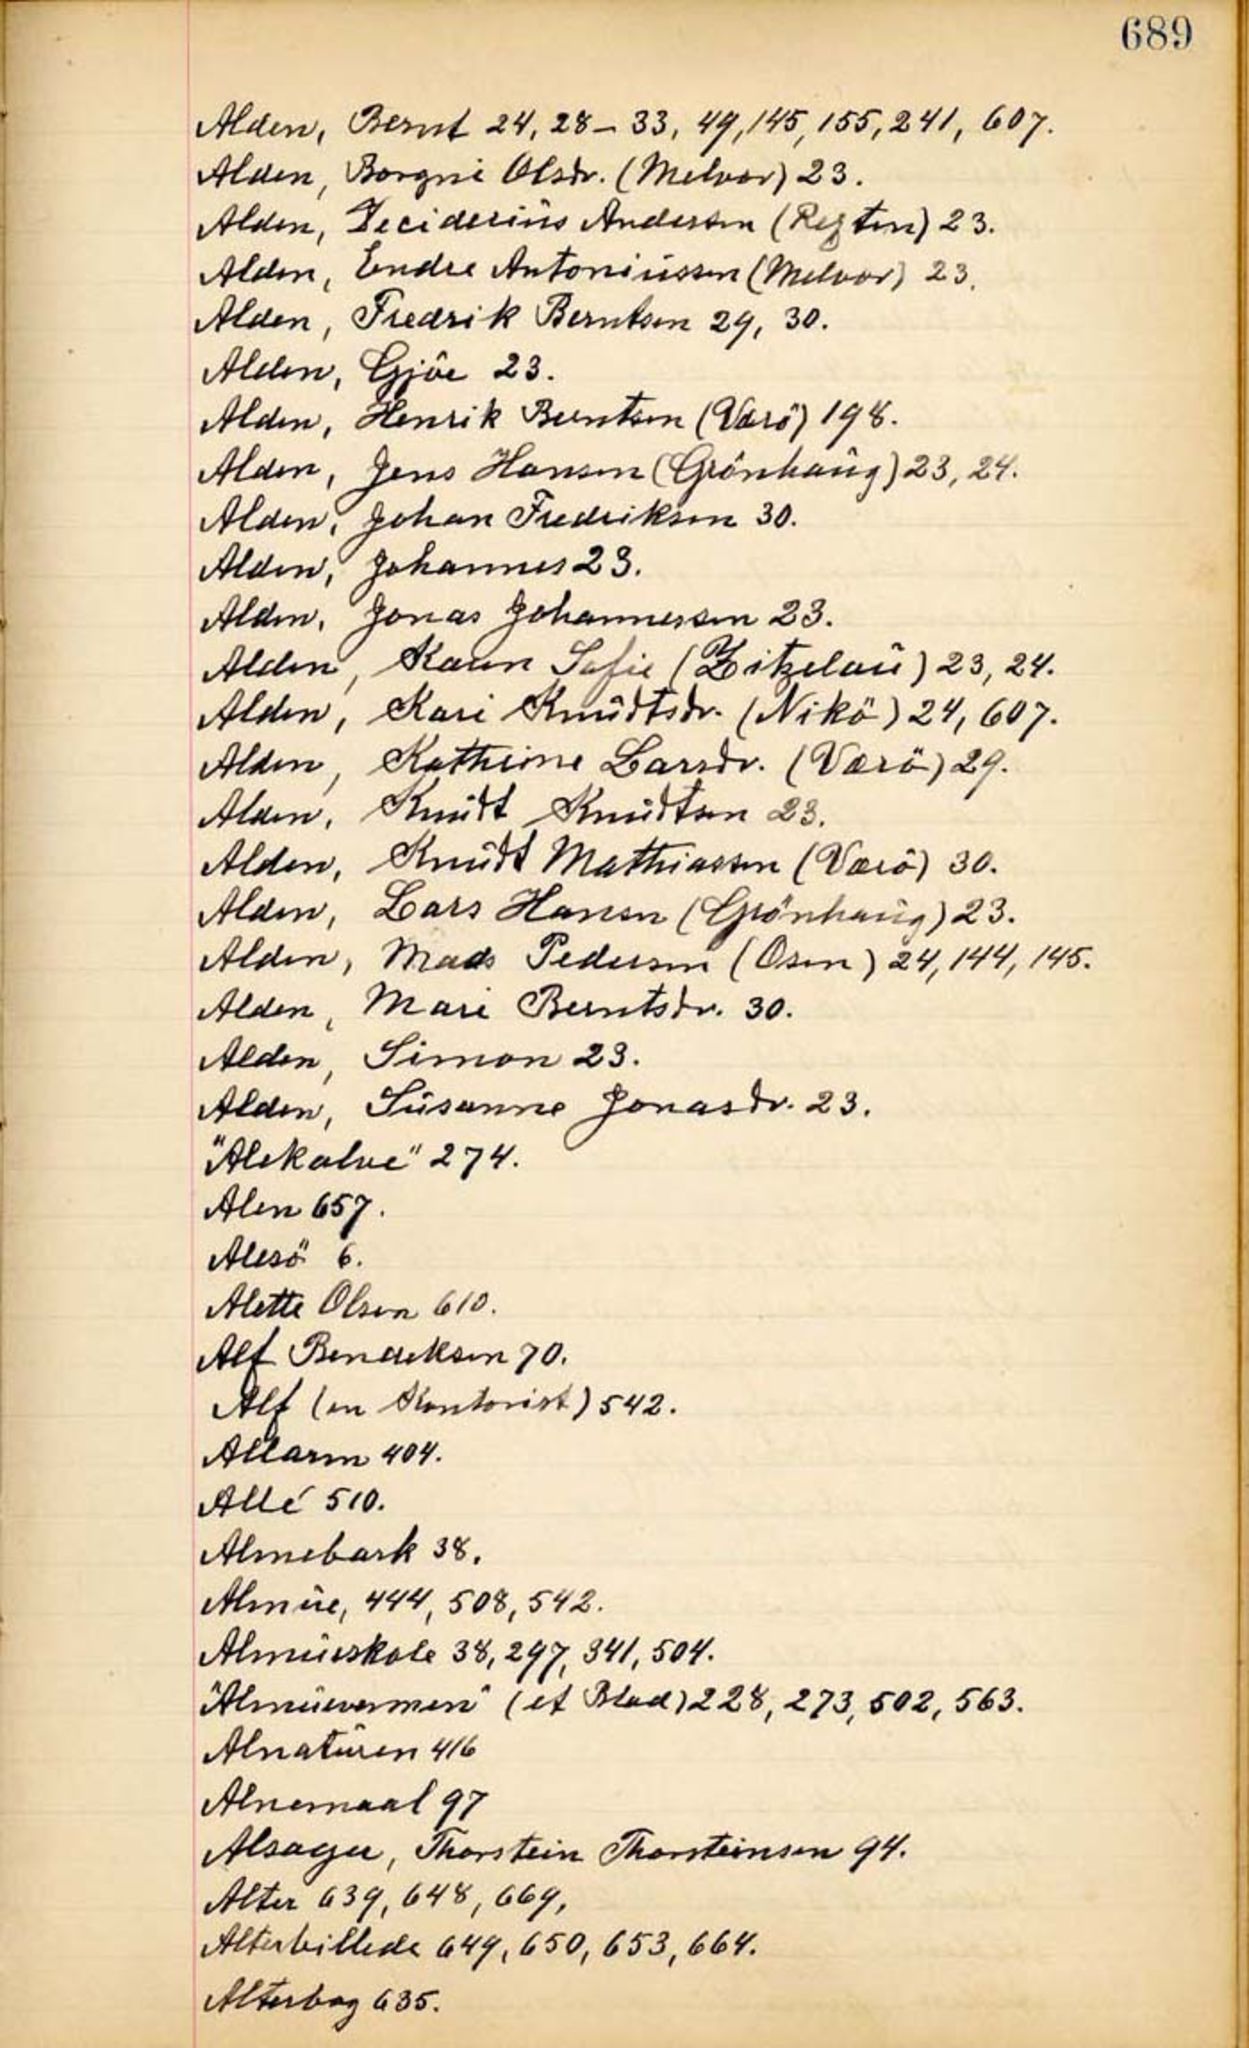 689
Alden, Bernt 24, 28-33, 49, 145, 155, 241, 607.
Alden, Borgni Olsdr. (Melvær) 23.
Alden, Deciderius Andersen (Regsten) 23.
Alden, Endre Antoniussen (Melvær) 23.
Alden, Fredrik Berntsen 29, 30.
Alden, Gjøe 23.
Alden, Henrik Berntsen (Værö) 198.
Alden, Jens Hansen (Grönhaŭg) 23, 24.
Alden, Johan Fredriksen 30.
Alden, Johannes 23.
Alden, Jonas Johannessen 23.
Alden, Karen Sofie (Zitzelaŭ) 23, 24.
Alden, Kari Knŭdtsdr. (Nikö) 24, 607.
Alden, Kathrine Larsdr. (Værö) 29.
Alden, Knŭdt Knŭdtsen 23.
Alden, Knŭdt Mathiassen (Værö) 30.
Alden, Lars Hansen (Grönhaŭg) 23.
Alden, Mads Pedersen (Osen) 24, 144, 145.
Alden, Mari Berntsdr. 30.
Alden, Simon 23.
Alden, Sŭsanne Jonasdr. 23.
"Alekalve" 274.
Alen 657.
Alesö 6.
Alette Olsen 610.
Alf Bendeksen 70.
Alf (en Kontorist) 542.
Allarm 404.
Allé 510.
Almebark 38.
Almŭe, 444, 508, 542.
Almŭeskole 38, 297, 341, 504.
"Almŭevennen" (et Blad) 228, 273, 502, 563.
Alnatŭren 416
Alnemaal 97
Alsager, Thorstein Thorsteinsen 94.
Alter 639, 648, 669,
Alterbillede 649, 650, 653, 664.
Alterbog 635.